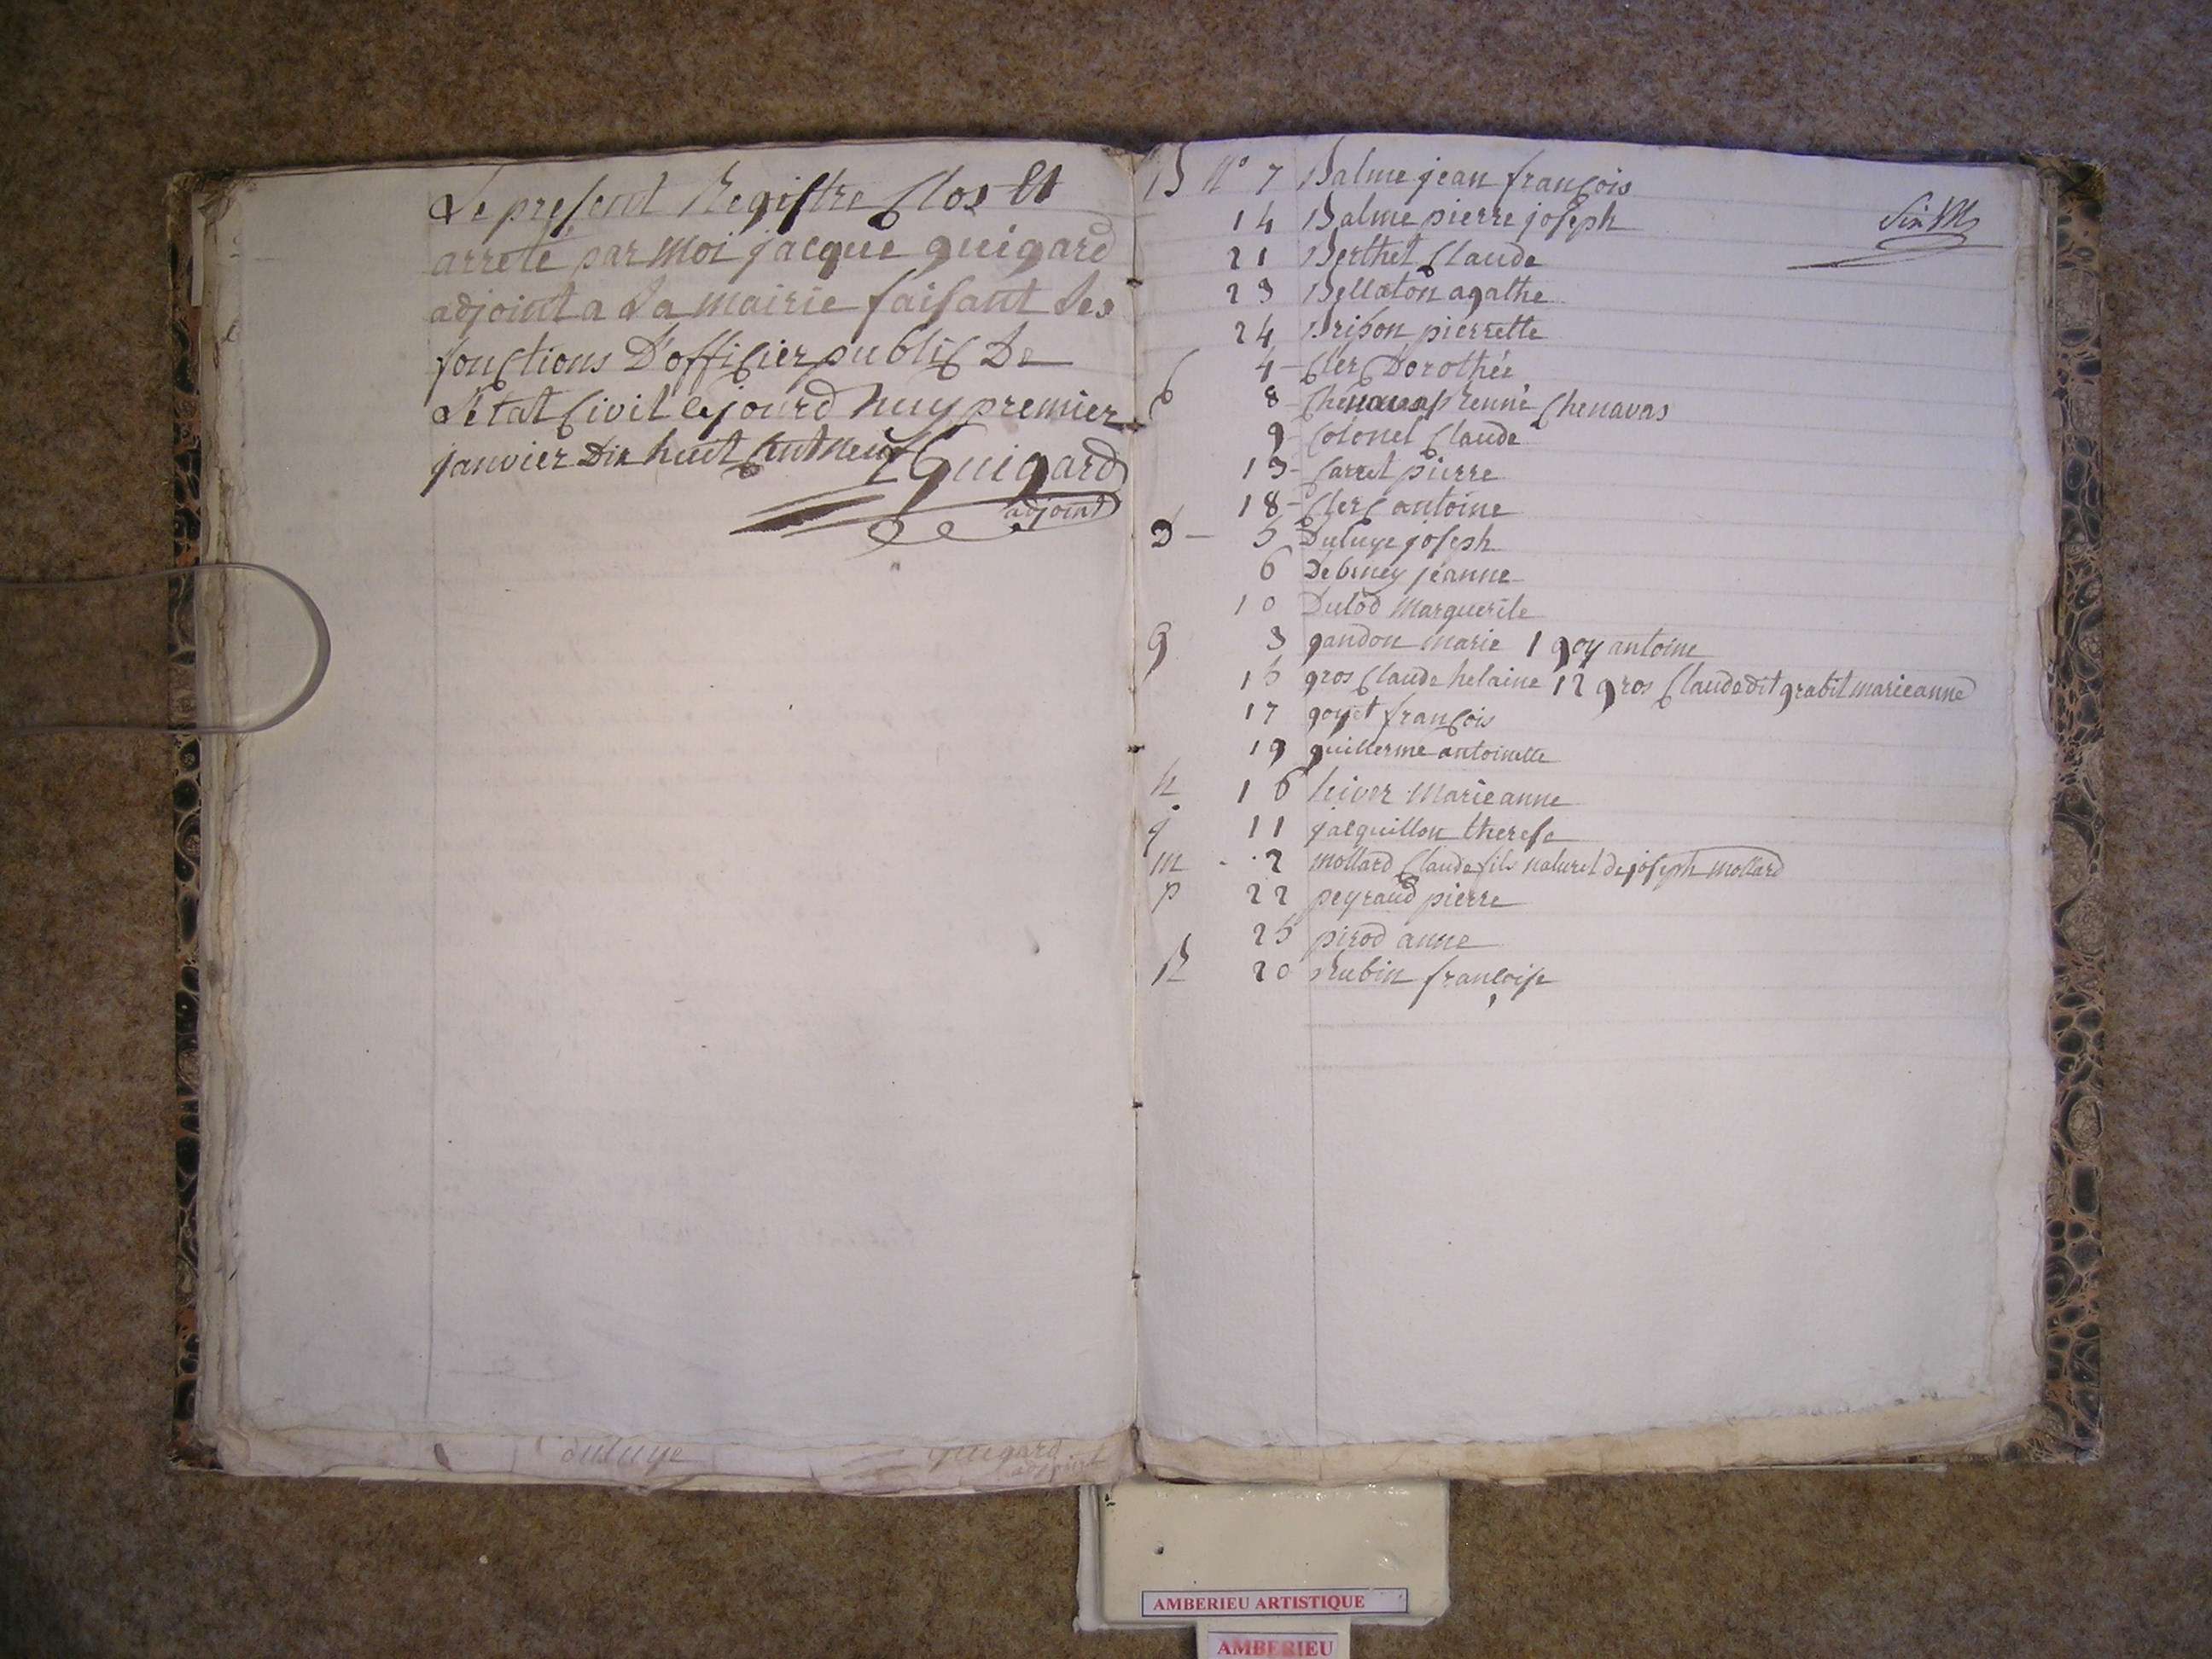 Le present Registre Clos Et
arreté par Moi jacque guigard
adjoint a La mairie faisant Les
fonctions D'officier public De
L'état Civil cejourd huy premier
janvier Dix huit Cent neuf Guigard
adjoint
duluye guigard
adjoint
B N° 7 Balme jean françois
14 Balme pierre joseph
21 Berthet Claude
23 Bellaton agathe
24 Brison pierrette
C 4 - Clerc Dorothée
8 - Renné Chenavas
9 - Colonel Claude
13 - Carret pierre
18 - Clerc antoine
D - 5 Duluye joseph
6 Debeney jeanne
10 Dulod Marguerite
g 3 gandon marie 1 goy antoine
15 gros Claude helaine 12 gros Claude dit grabit marieanne
17 goyet françois
19 guillerme antoinette
h 16 hiver Marieanne
j 11 jacquillon therese
m - 2 mollard Claude fils naturel de joseph mollard
p 22 peyraud pierre
25 pirod anne
R 20 Rubin françoise
AMBERIEU ARTISTIQUE
AMBERIEU